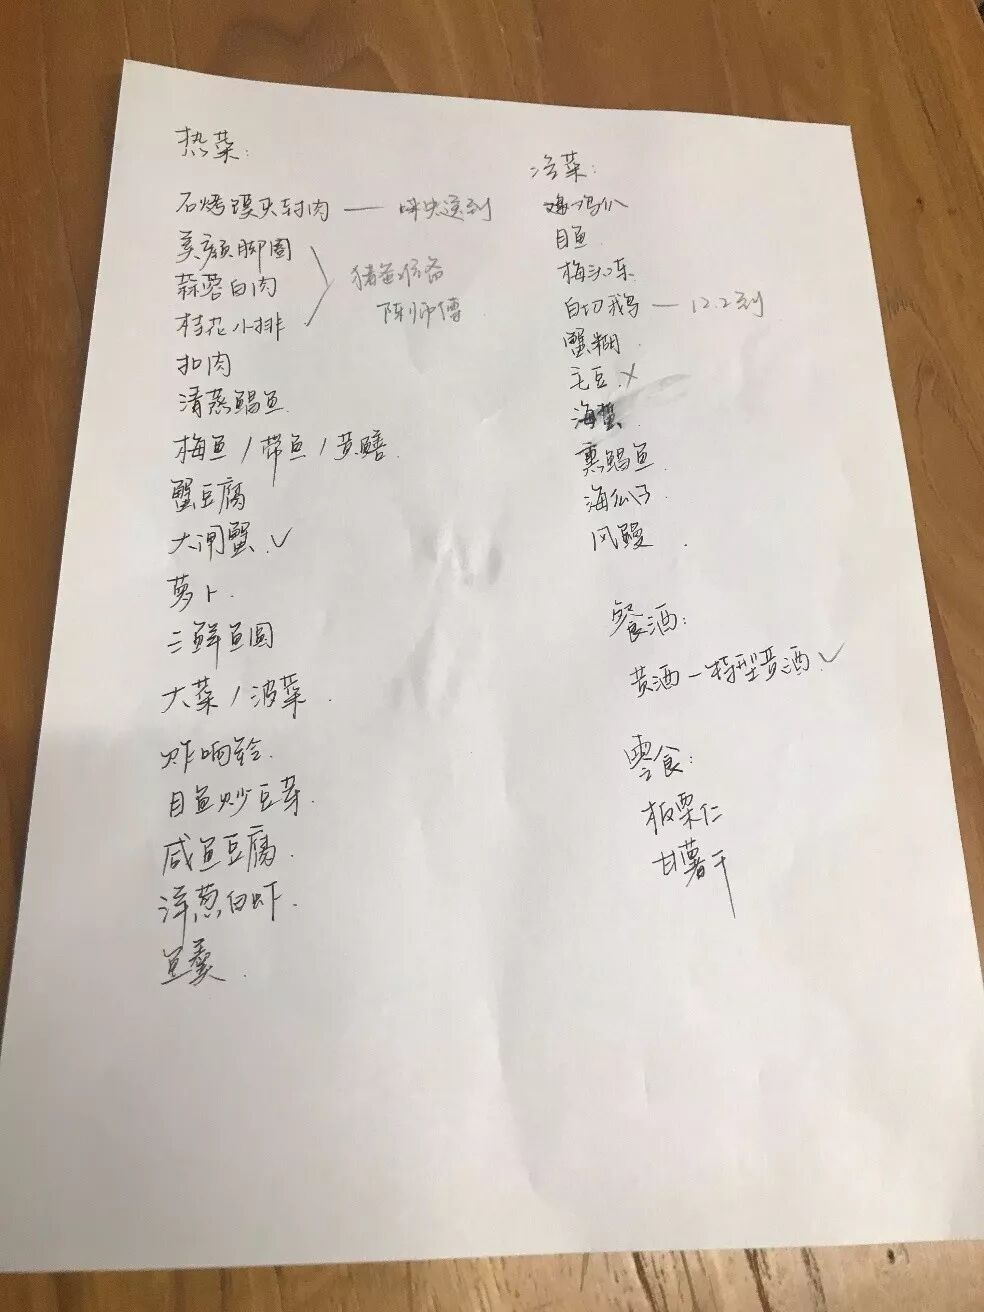 热菜:
石烤馒头封肉 —
美颜脚圈
蒜蓉白肉
桂花小排
陈师傅
扣肉
清蒸鲳鱼
梅鱼/带鱼/黄鳝
蟹豆腐
大闸蟹.✓
萝卜.
三鲜鱼圆
大菜/波菜
炸响铃.
目鱼炒豆芽.
咸鱼豆腐.
洋葱白虾.
鱼羹.
冷菜:
目鱼
梅头冻
白切鹅 — 12.2到
蟹糊
毛豆.×
海蜇.
熏鲳鱼.
海瓜子
风鳗.
餐酒:
黄酒-特型黄酒✓
零食:
板栗仁
甘薯干